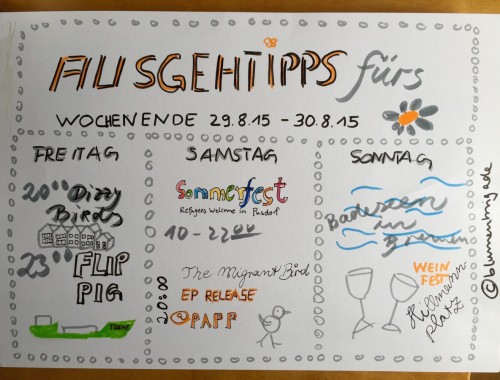 AUSGEHTIPPS fürs
WOCHENENDE 29.8.15 - 30.8.15
FREITAG
20°° Dizzy
Birds
23°° FLIP
PIG
SAMSTAG
Sommerfest
Refugees Welcome in Pusdorf
10-22°°
20:00
The Migrant Bird
EP RELEASE
@PAPP
SONNTAG
Badeseen
in
Bremen
WEIN
FEST
Hillmann
platz
@blumenbrigade